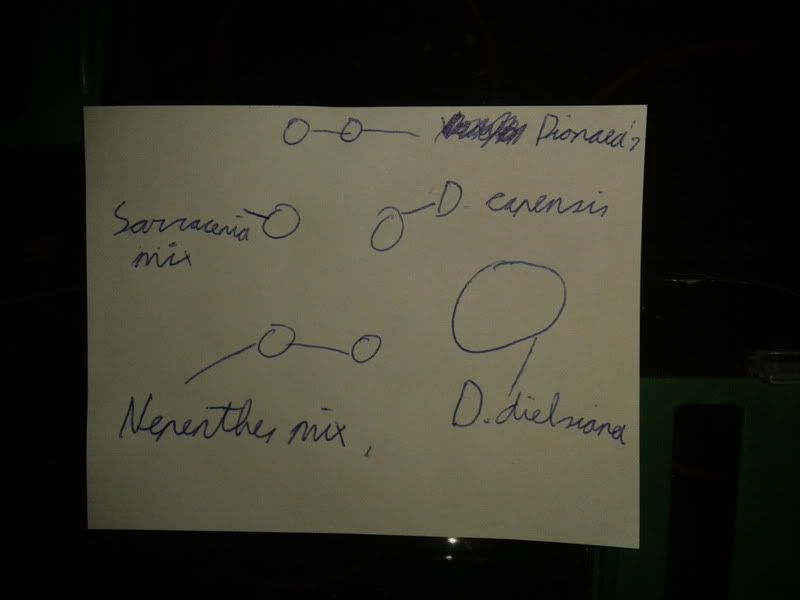 Dionaea's
D. capensis
Sarracenia
mix
Nepenthes mix,
D. dielsiana